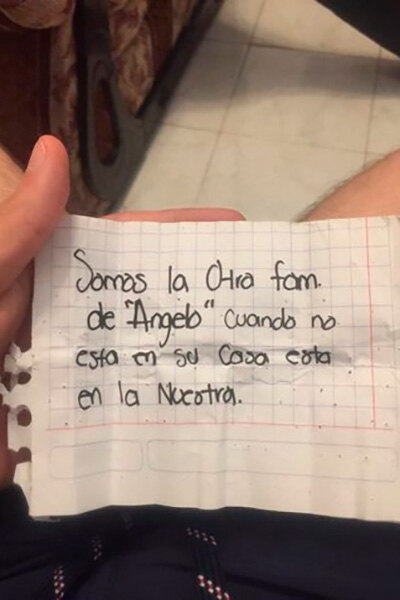 Somos la Otra fam.
de "Angelo" cuando no
esta en su casa esta
en la Nuestra.